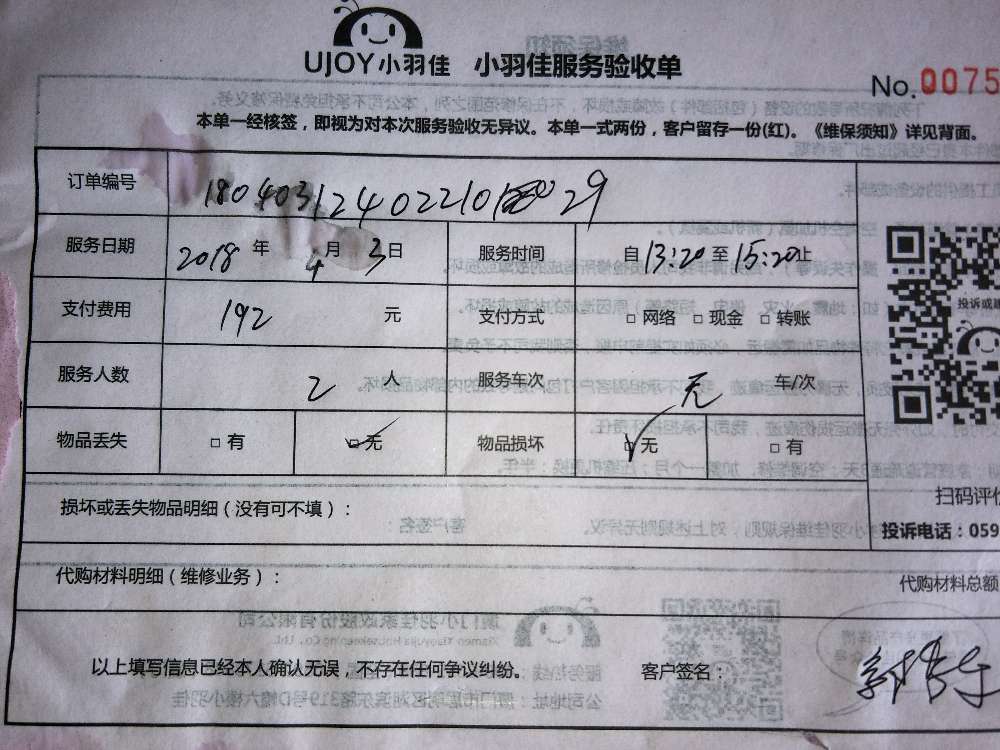 UJOY小羽佳 小羽佳服务验收单
No. 0075
本单一经核签，即视为对本次服务验收无异议。本单一式两份，客户留存一份(红)。《维保须知》详见背面。
订单编号
服务日期 2018 年 4 月 3 日 服务时间 自 13:20 至 15:20 止
支付费用 192 元 支付方式 □ 网络 □ 现金 □ 转账
服务人数 2 人 服务车次 无 车/次
物品丢失 □ 有 □ 无 物品损坏 □ 无 □ 有
投诉或
损坏或丢失物品明细（没有可不填）：
扫码评价
投诉电话：059
代购材料明细（维修业务）：
代购材料总额
以上填写信息已经本人确认无误，不存在任何争议纠纷。 客户签名：